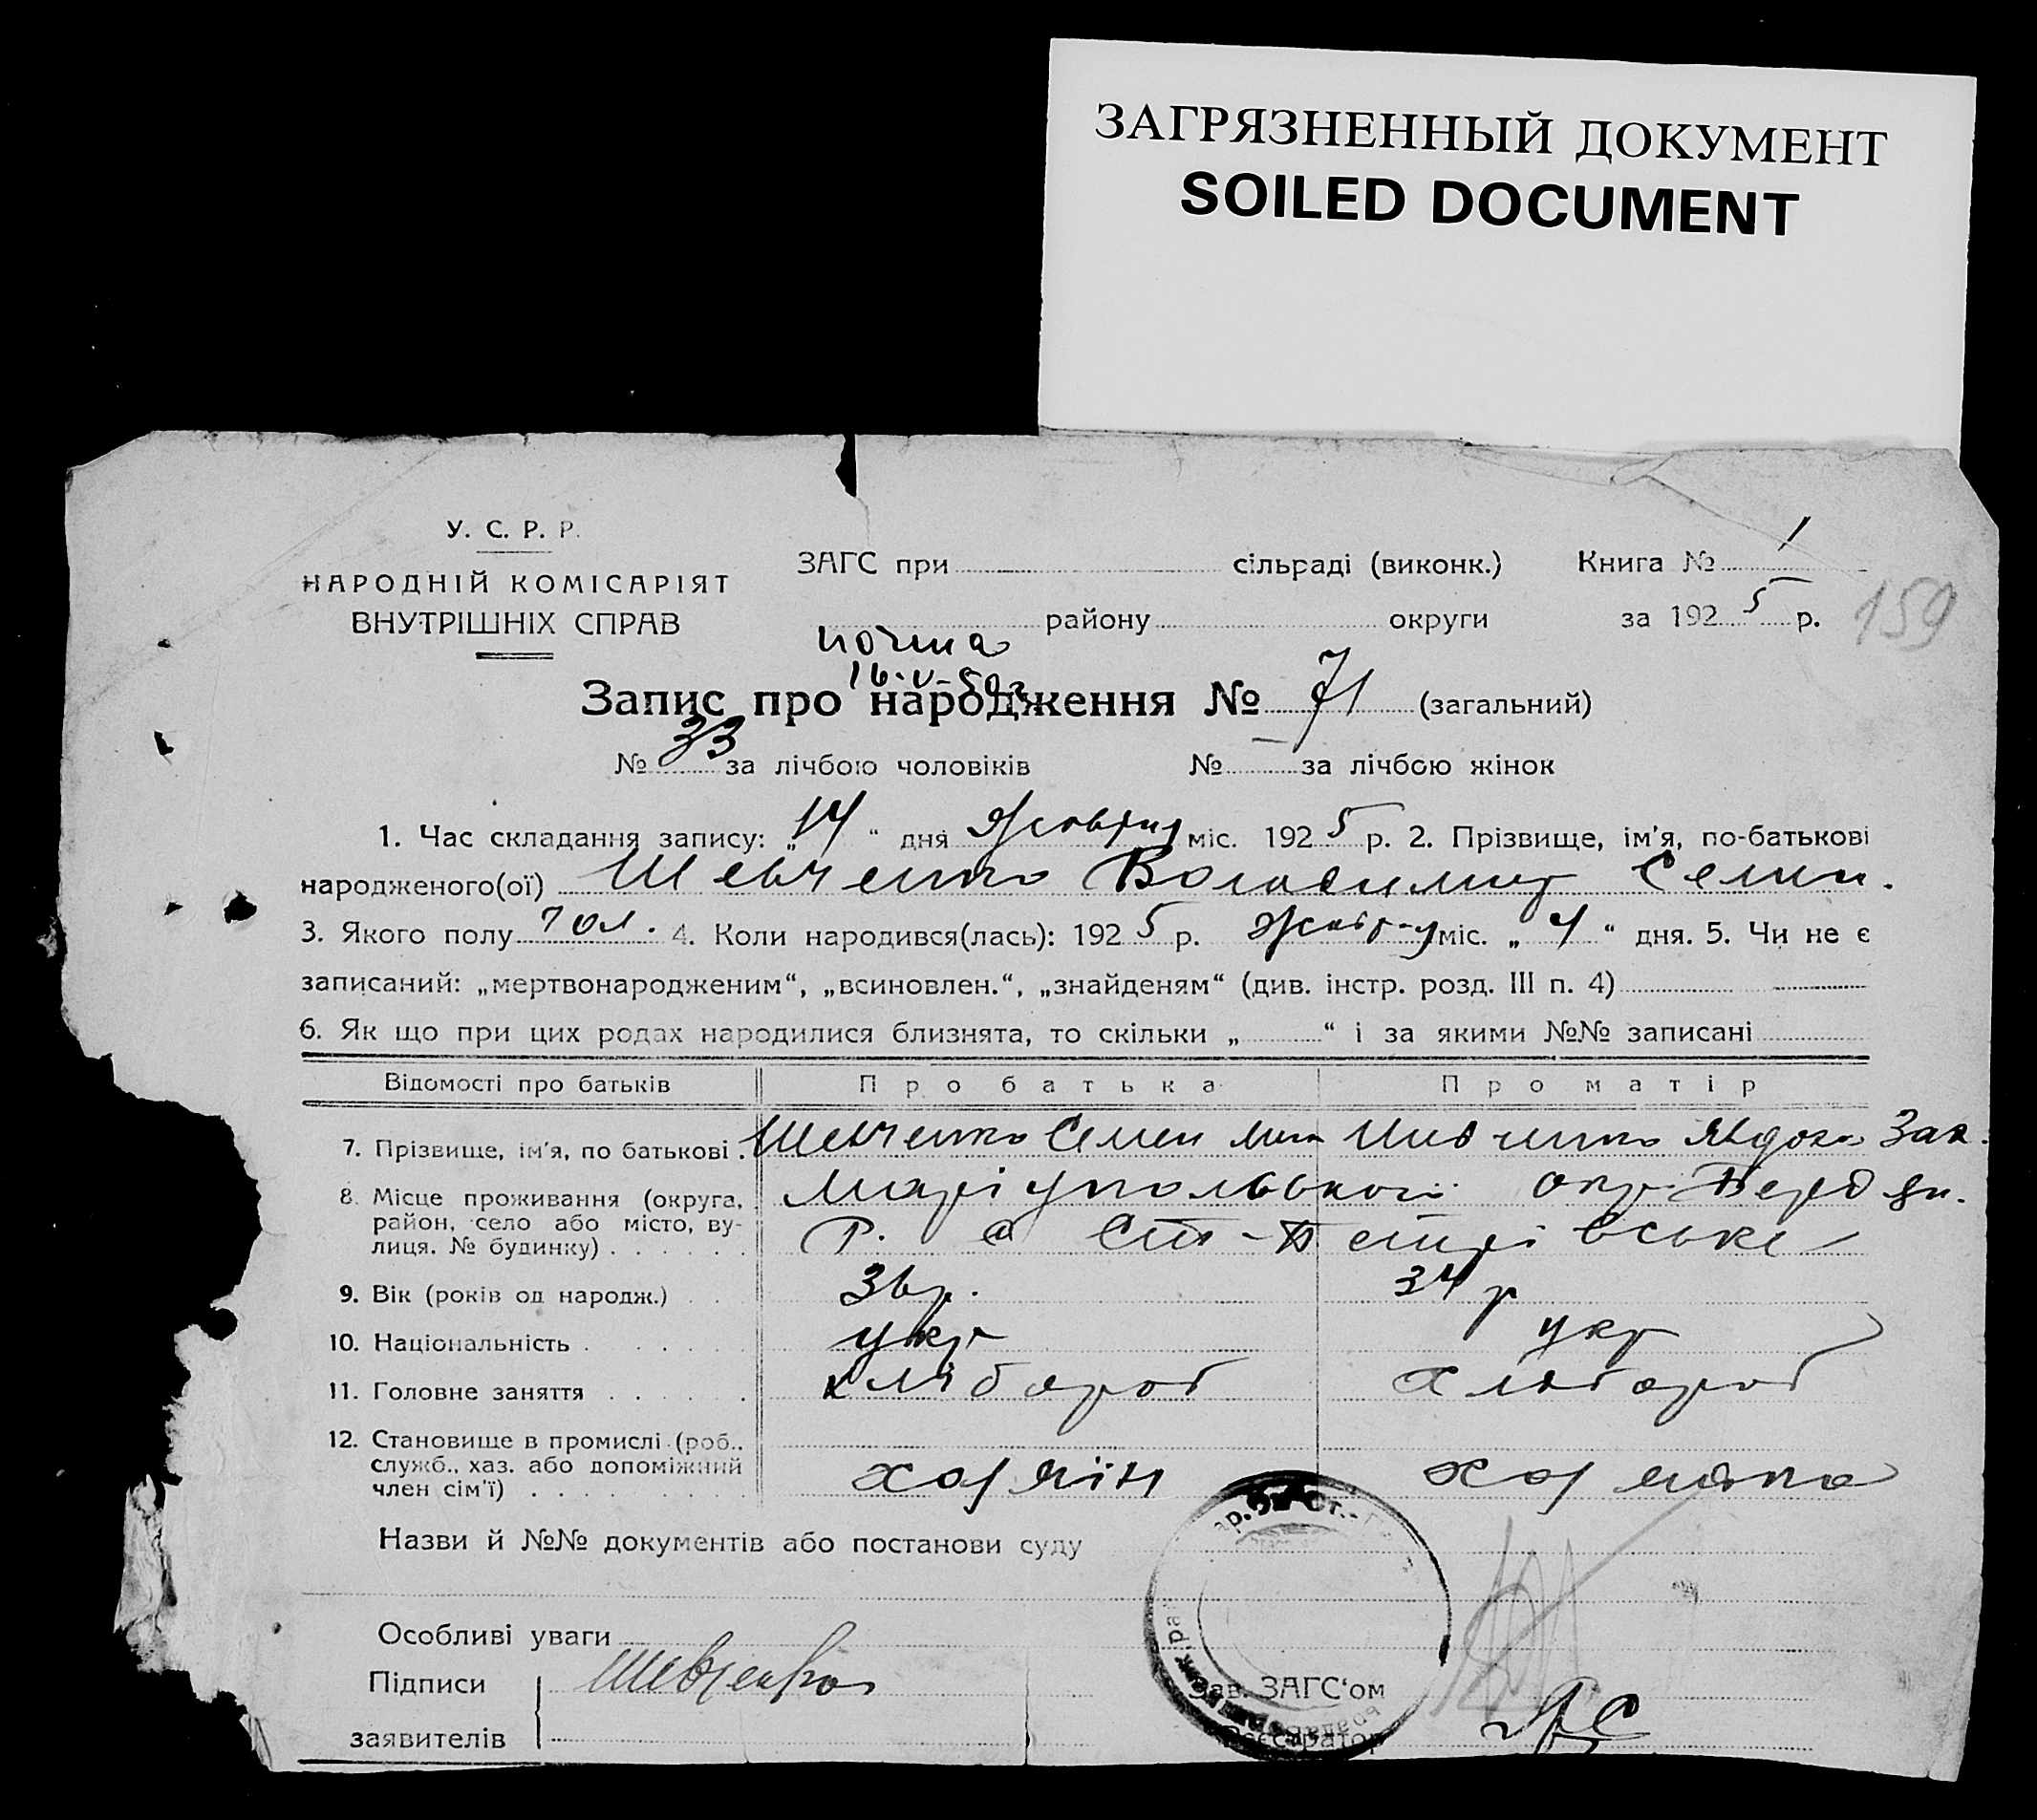 ЗАГРЯЗНЕННЫЙ ДОКУМЕНТ
SOILED DOCUMENT
У. С. Р. Р.
НАРОДНІЙ КОМІСАРІЯТ
ВНУТРІШНІХ СПРАВ
ЗАГС при сільраді (виконк.) Книга № 1
району округи за 1925 р.
159
16-V-50г
Запис про народження № 71 (загальний)
№ 33 за лічбою чоловіків № за лічбою жінок
1. Час складання запису: „14“ дня Жовтня міс. 1925 р. 2. Прізвище, ім'я, по-батькові
народженого(ої) Шевченко Володимир Семен.
3. Якого полу чол. 4. Коли народився(лась): 1925 р. Жовт-я міс. „4“ дня. 5. Чи не є
записаний: „мертвонародженим“, „всиновлен.“, „знайденям“ (див. інстр. розд. III п. 4)
6. Як що при цих родах народилися близнята, то скільки „ “ і за якими №№ записані
Відомості про батьків Про батька Про матір
7. Прізвище, ім'я, по батькові Шевченко Семен Шевченко Явдоха Зах.
8. Місце проживання (округа, район, село або місто, вулиця. № будинку) Маріупольської окр Бердян.
Р. с Ст-Петрівське
9. Вік (років од народж.) 36р. 34 р
10. Національність укр укр
11. Головне заняття хлібороб хлібороб
12. Становище в промислі (роб., служб., хаз. або допоміжний член сім'ї) хозяїн хозяйка
Назви й №№ документів або постанови суду
Особливі уваги
Підписи заявителів Шевченко
Зав. ЗАГС'ом
Реєстратор